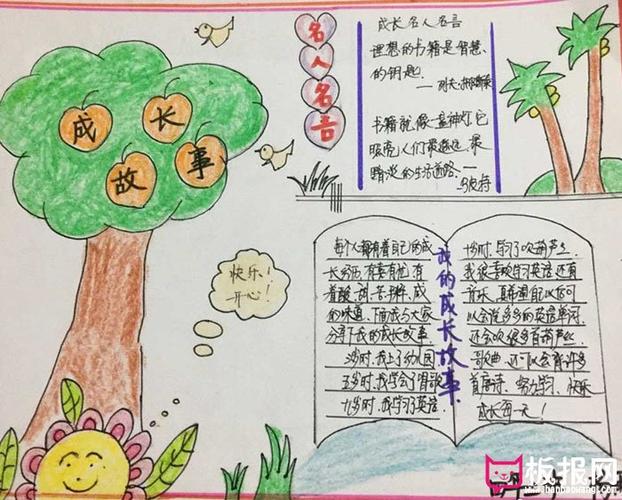 成长故事
名人名言
成长名人名言
理想的书籍是智慧
的钥匙
书籍就像一盏神灯,它
照亮人们最遥远、最
暗淡的生活道路
快乐!
开心!
我的成长故事
每个人都有着自己的成
长经历,有喜有忧,有
着酸、甜、苦、辣、咸
的味道,下面我与大家
分享下我的成长故事.
3岁时,我上了幼儿园
五岁时,我学会了唱歌
九岁时,我学习了英语.
十岁时,学习了吹葫芦丝.
我很喜欢学习英语还有
音乐,真希望自己以后可
以会说多多的英语单词,
还会吹很多首葫芦丝
歌曲,还可以会背许多
首唐诗,努力学习,快乐
成长每一天!
板报网